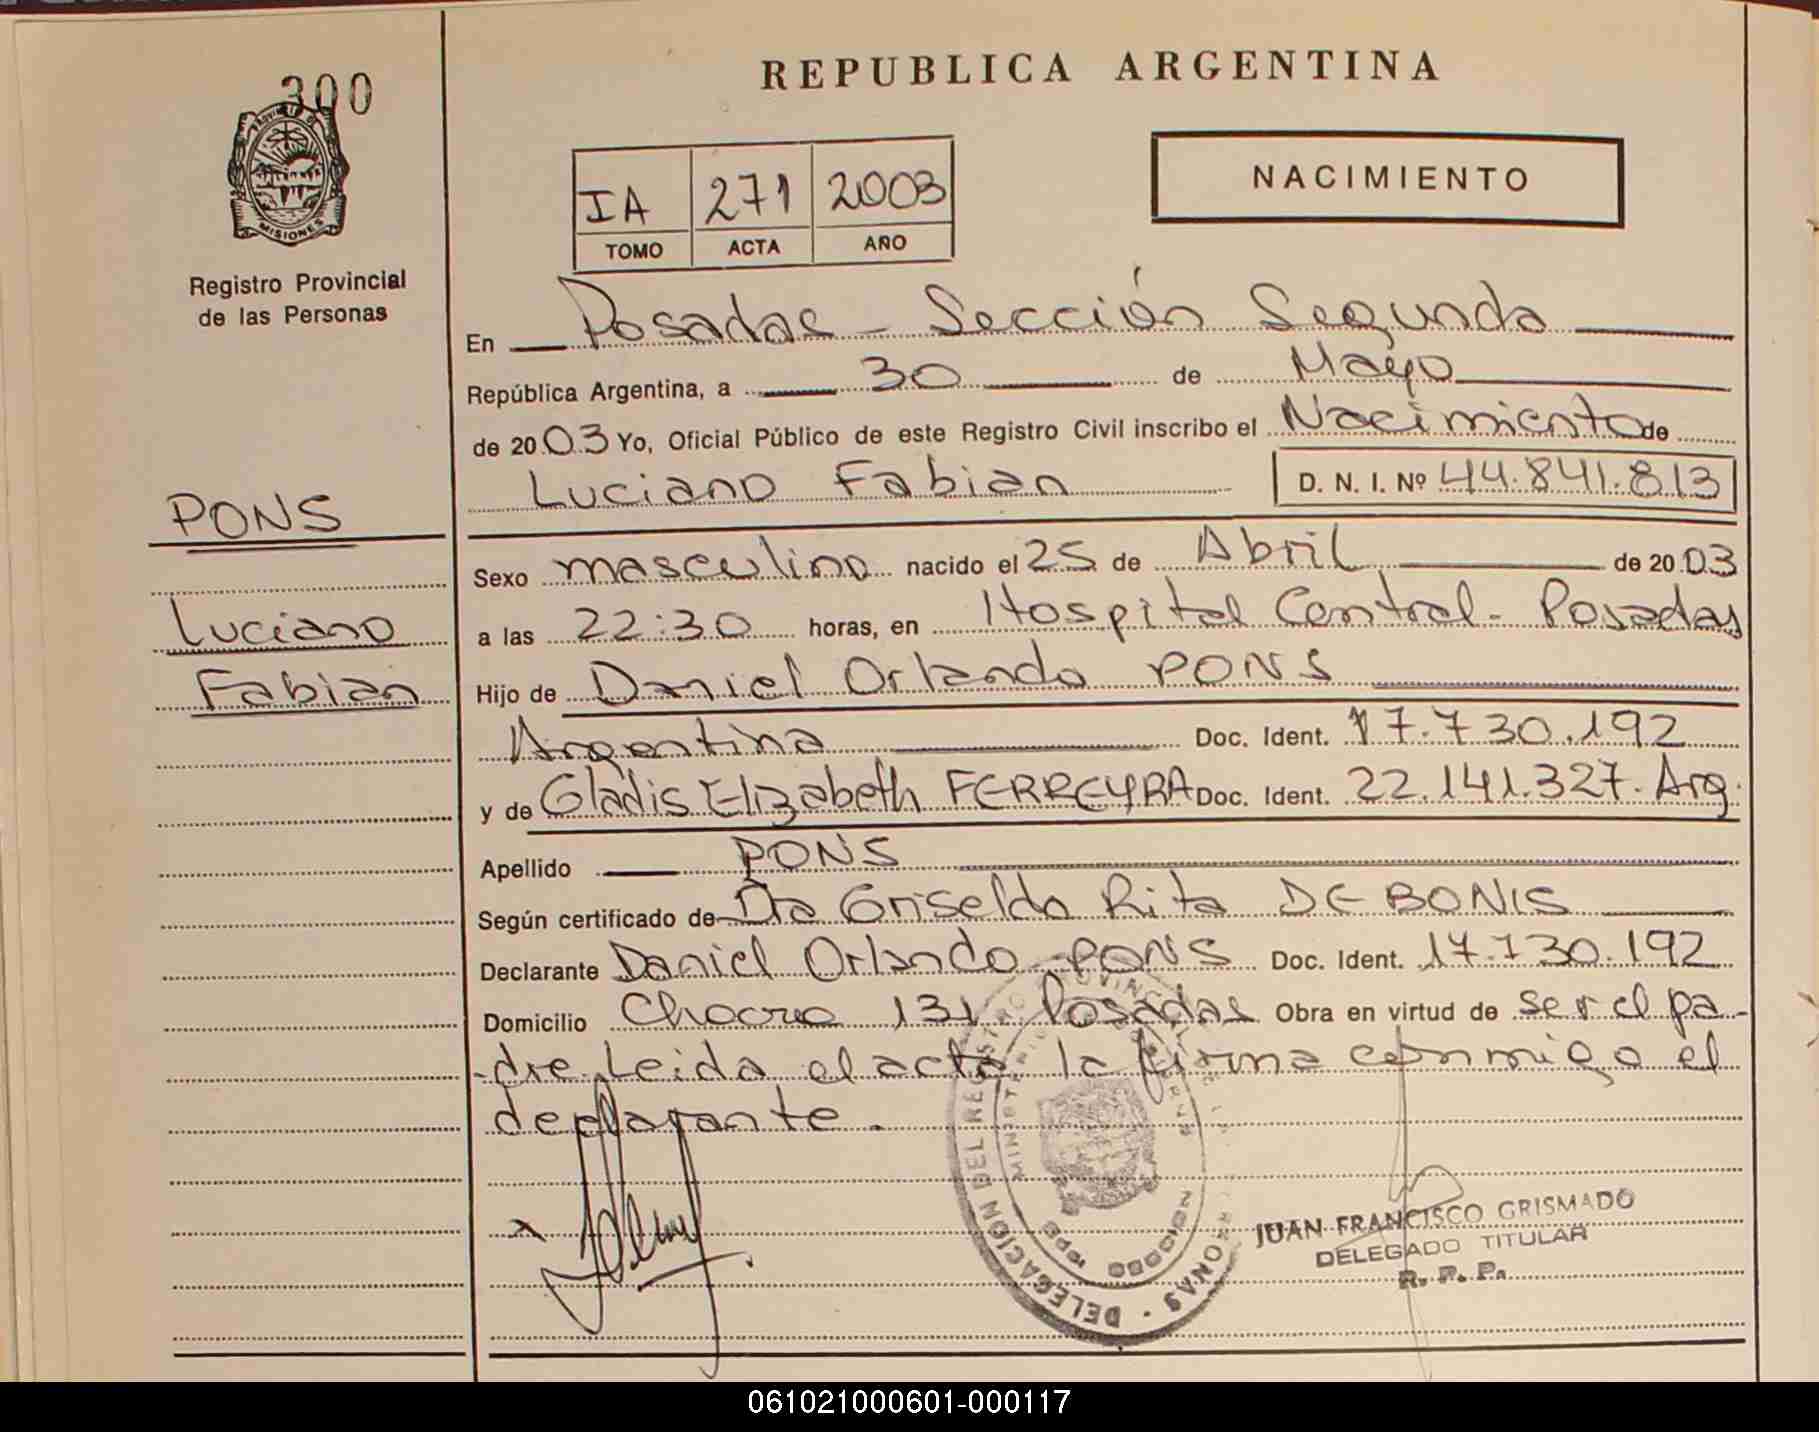 300
REPUBLICA ARGENTINA
MISIONES
Registro Provincial
de las Personas
IA 271 2003
TOMO ACTA AÑO
NACIMIENTO
En Posadas - Sección Segunda
República Argentina, a 30 de Mayo
de 2003 Yo, Oficial Público de este Registro Civil inscribo el Nacimiento de
Luciano Fabian D. N. I. Nº 44.841.813
PONS
Luciano
Fabian
Sexo masculino nacido el 25 de Abril de 2003
a las 22:30 horas, en Hospital Central - Posadas
Hijo de Daniel Orlando PONS
Argentina Doc. Ident. 17.730.192
y de Gladis Elizabeth FERREYRA Doc. Ident. 22.141.327. Arg.
Apellido PONS
Según certificado de Dra Griselda Rita DE BONIS
Declarante Daniel Orlando PONS Doc. Ident. 17.730.192
Domicilio 131 Posadas Obra en virtud de ser el pa-
-dre. Leida el acta la firma conmigo el
declarante.
DELEGACION DEL REGISTRO
JUAN FRANCISCO GRISMADO
DELEGADO TITULAR
R. P. P.
061021000601-000117